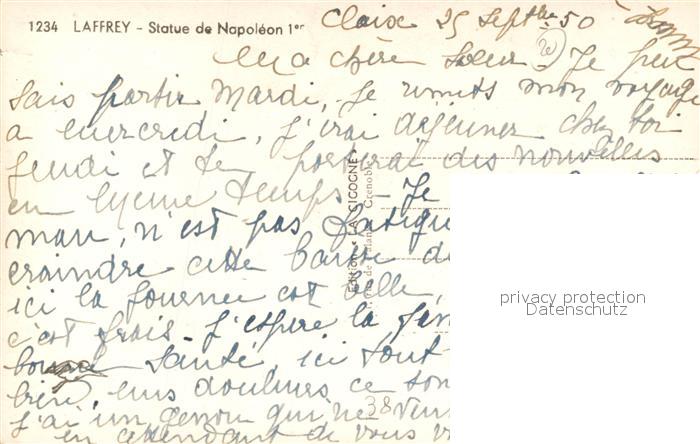 1234 LAFFREY - Statue de Napoléon 1er
Claix 25 Septbre 50
Ma chère Soeur Je peux
pas partir Mardi, je remets mon voyage
a mercredi, j'irai déjeuner chez toi
jeudi et te porterai des nouvelles
en même temps - Je
man, n'est pas fatigu
craindre cette baisse de
ici la journée est belle,
c'est frais - j'espère la
bonne santé, ici tout
bien, mes douleurs ce son
j'ai un genou qui ne veu
en attendant de vous v
Editions « LA CIGOGNE »
Grenoble
38
privacy protection
Datenschutz